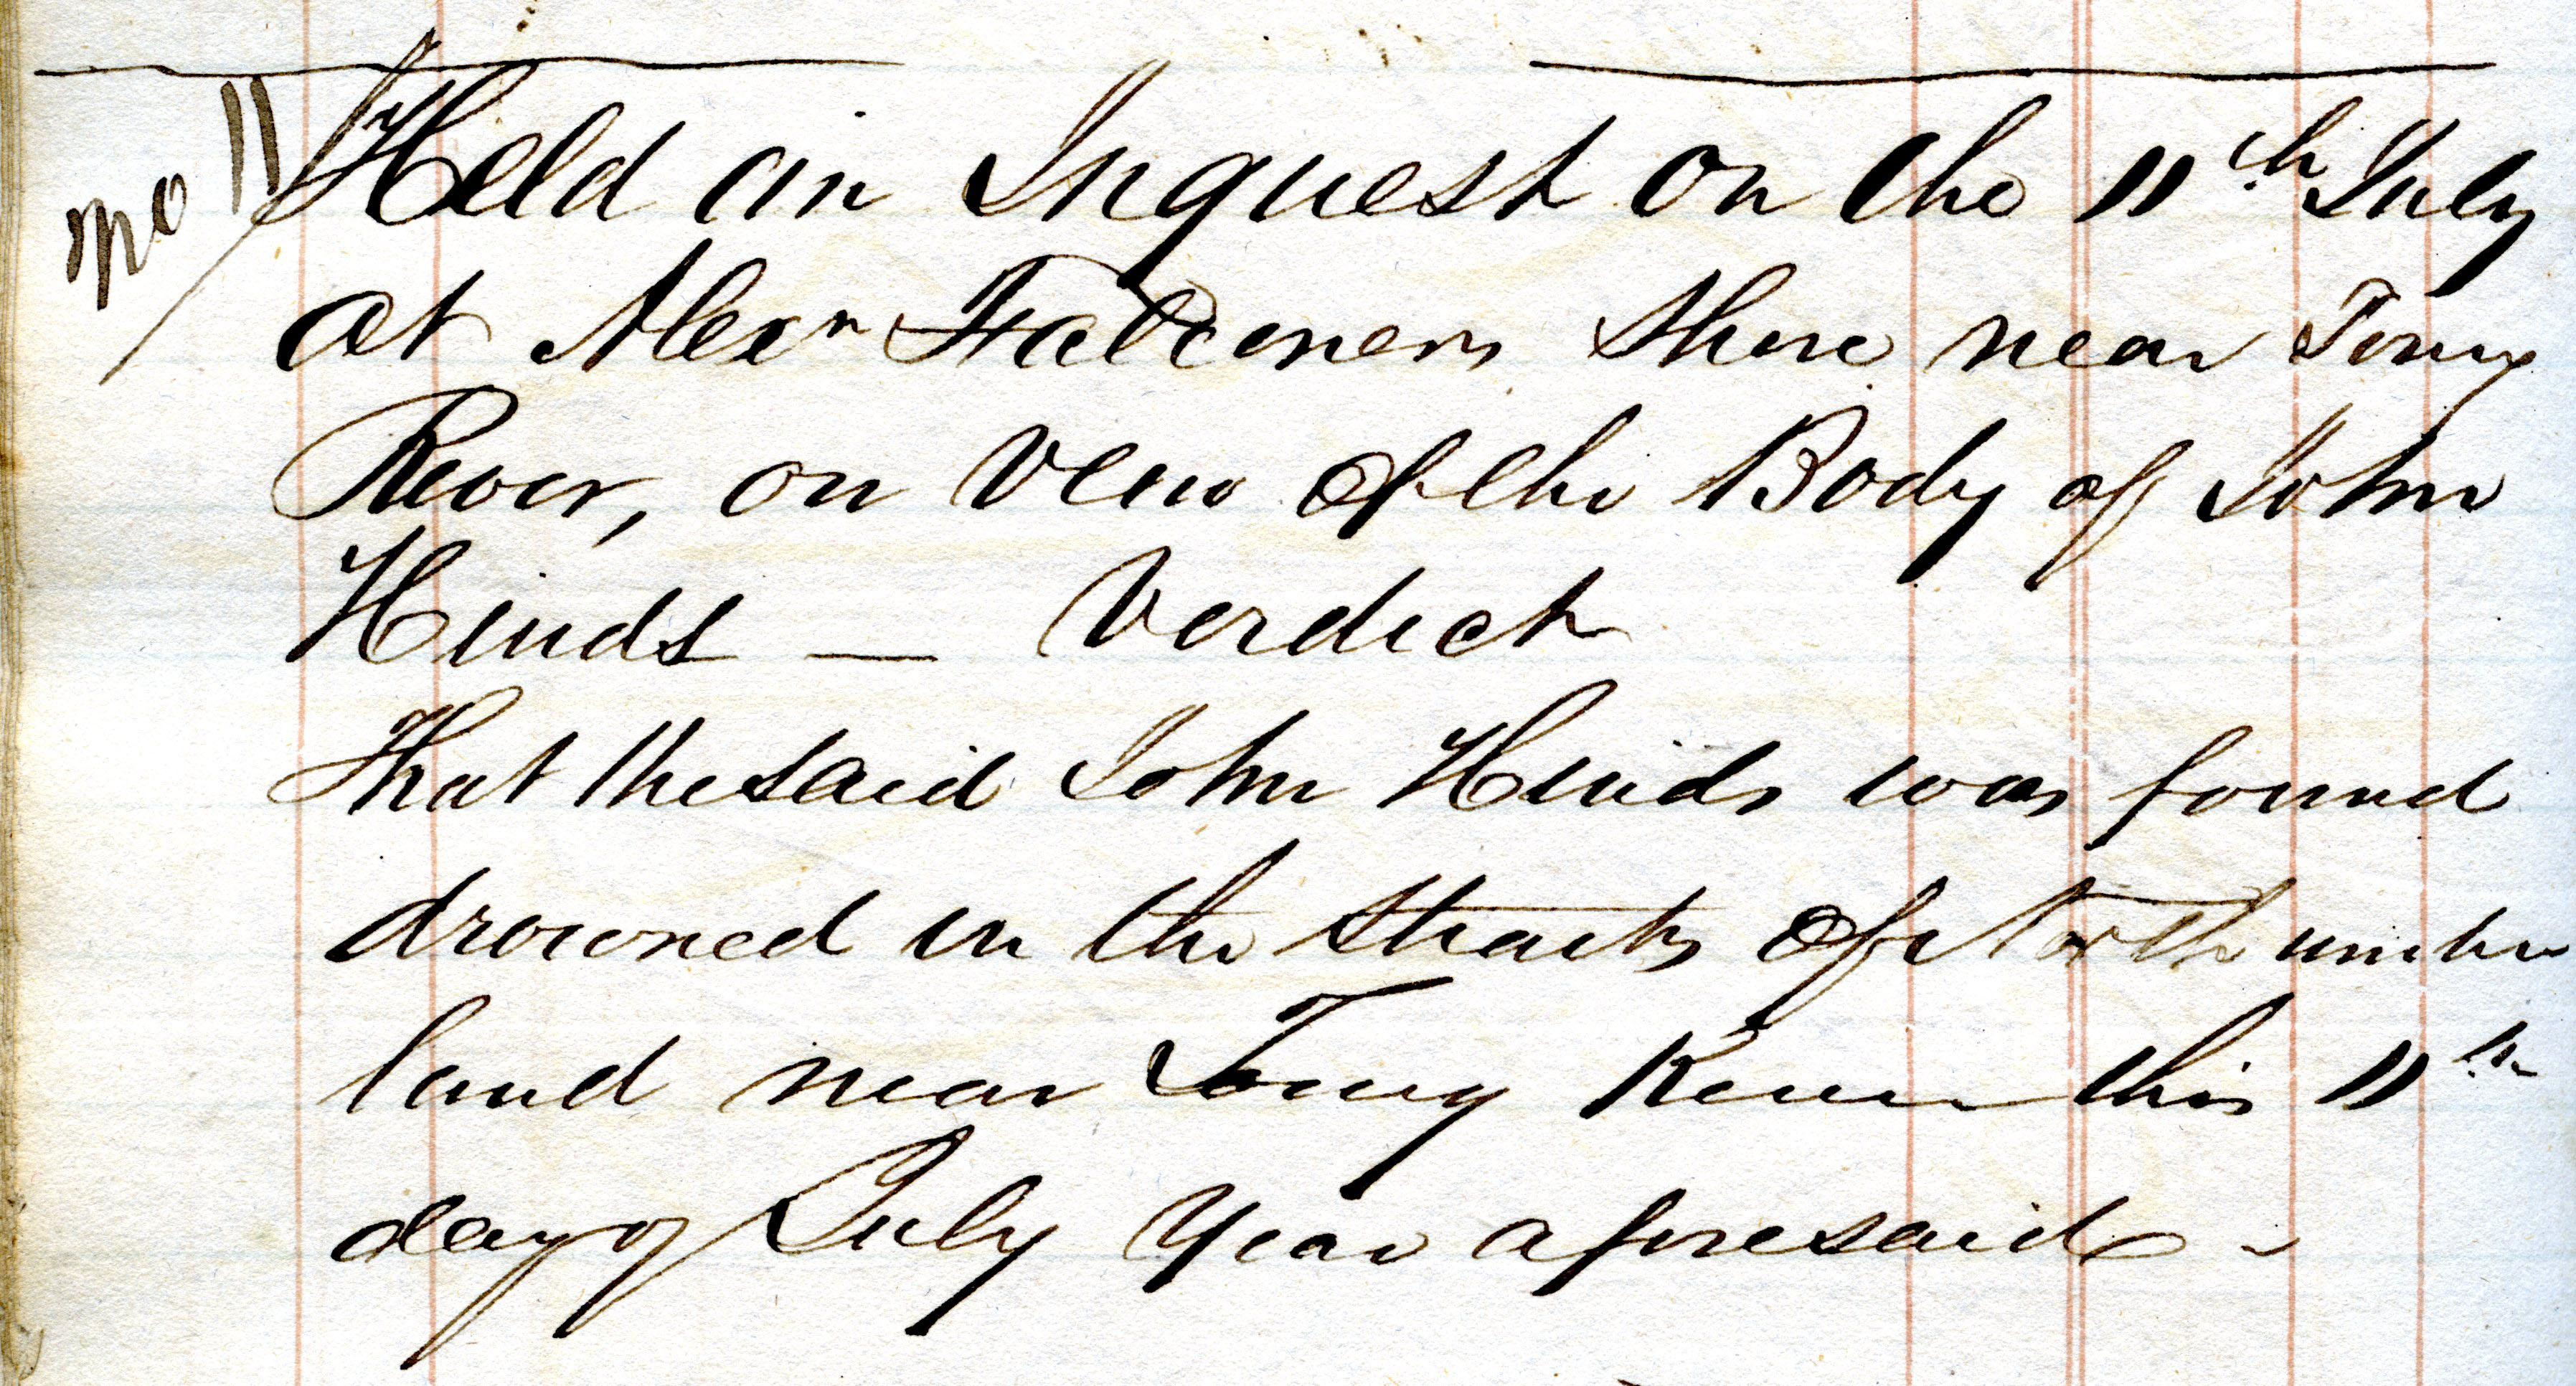 No 11
Held an Inquest on the 11th July
at Alexr Falconers Shore near Toney
River, on View of the Body of John
Hinds — Verdict
That the said John Hinds was found
drowned in the Straits of Northumber
land near Toney River this 11th
day of July Year aforesaid -